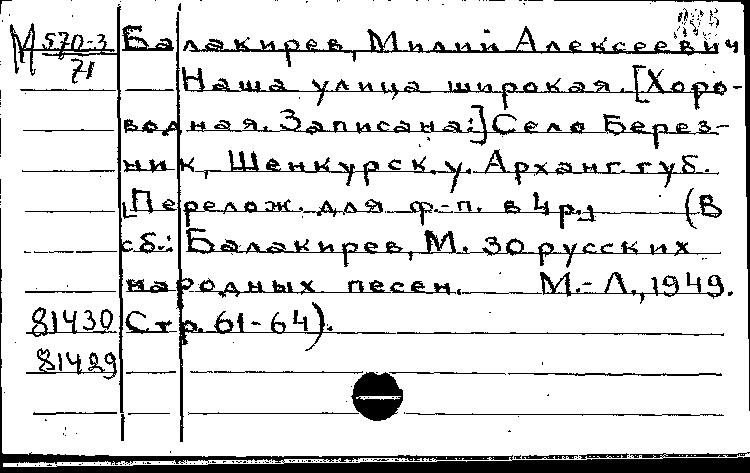 М 570-3/71 Балакирев, Милий Алексеевич
Наша улица широкая. [Хоро-
водная. Записана:] Село Берез-
ник, Шенкурск. у. Арханг. губ.
[Перелож. для ф.-п. в 4 р.] (В
сб.: Балакирев, М. 30 русских
народных песен. М.-Л., 1949.
81430 Стр. 61-64).
81429